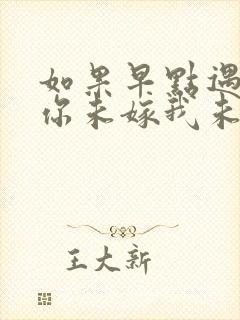 如果早點遇
你未嫁我未
王大新